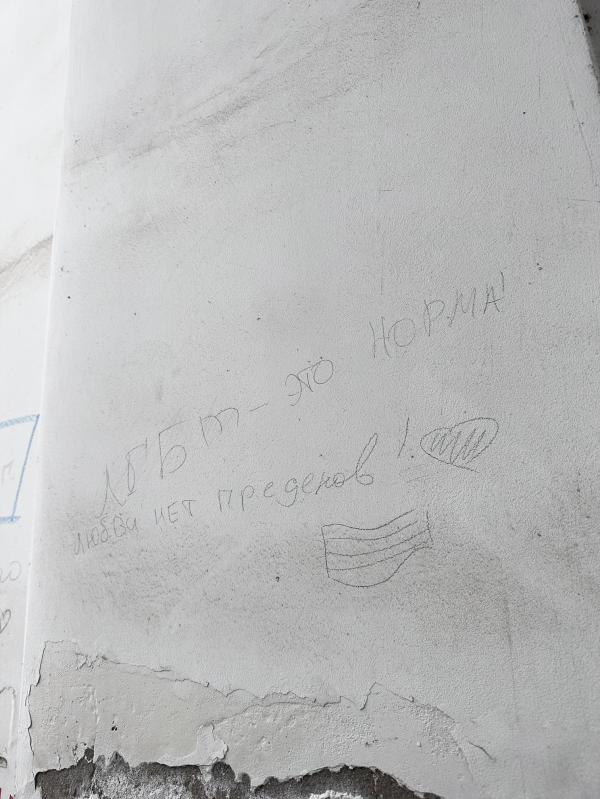 ЛГБТ - это НОРМА!
Любви нет пределов!